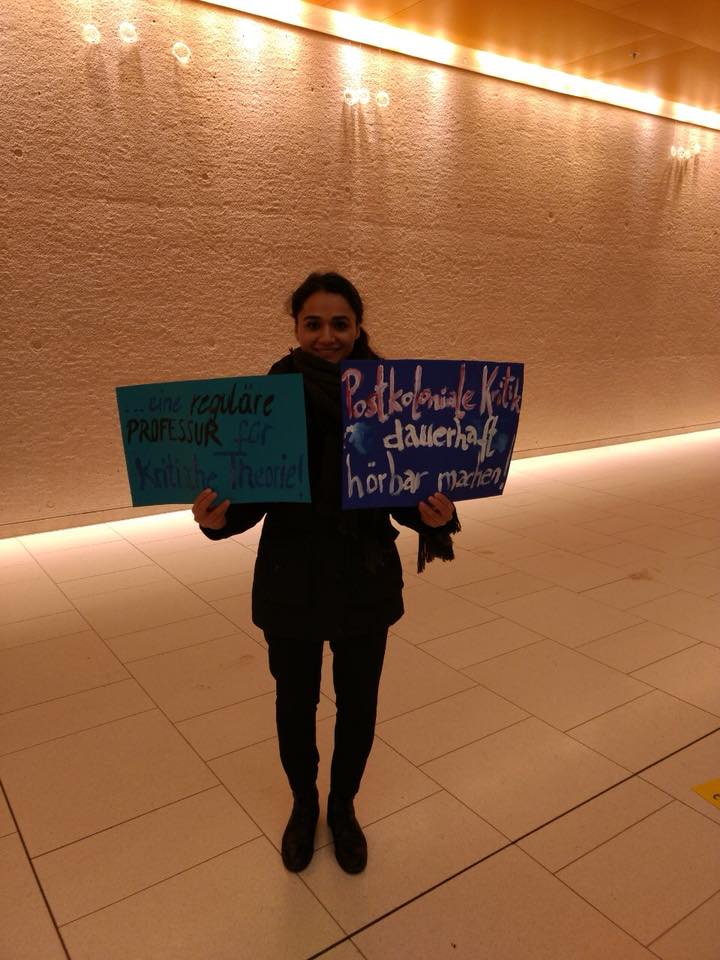 ...eine reguläre
PROFESSUR für
Kritische Theorie!
Postkoloniale Kritik
dauerhaft
hörbar machen!